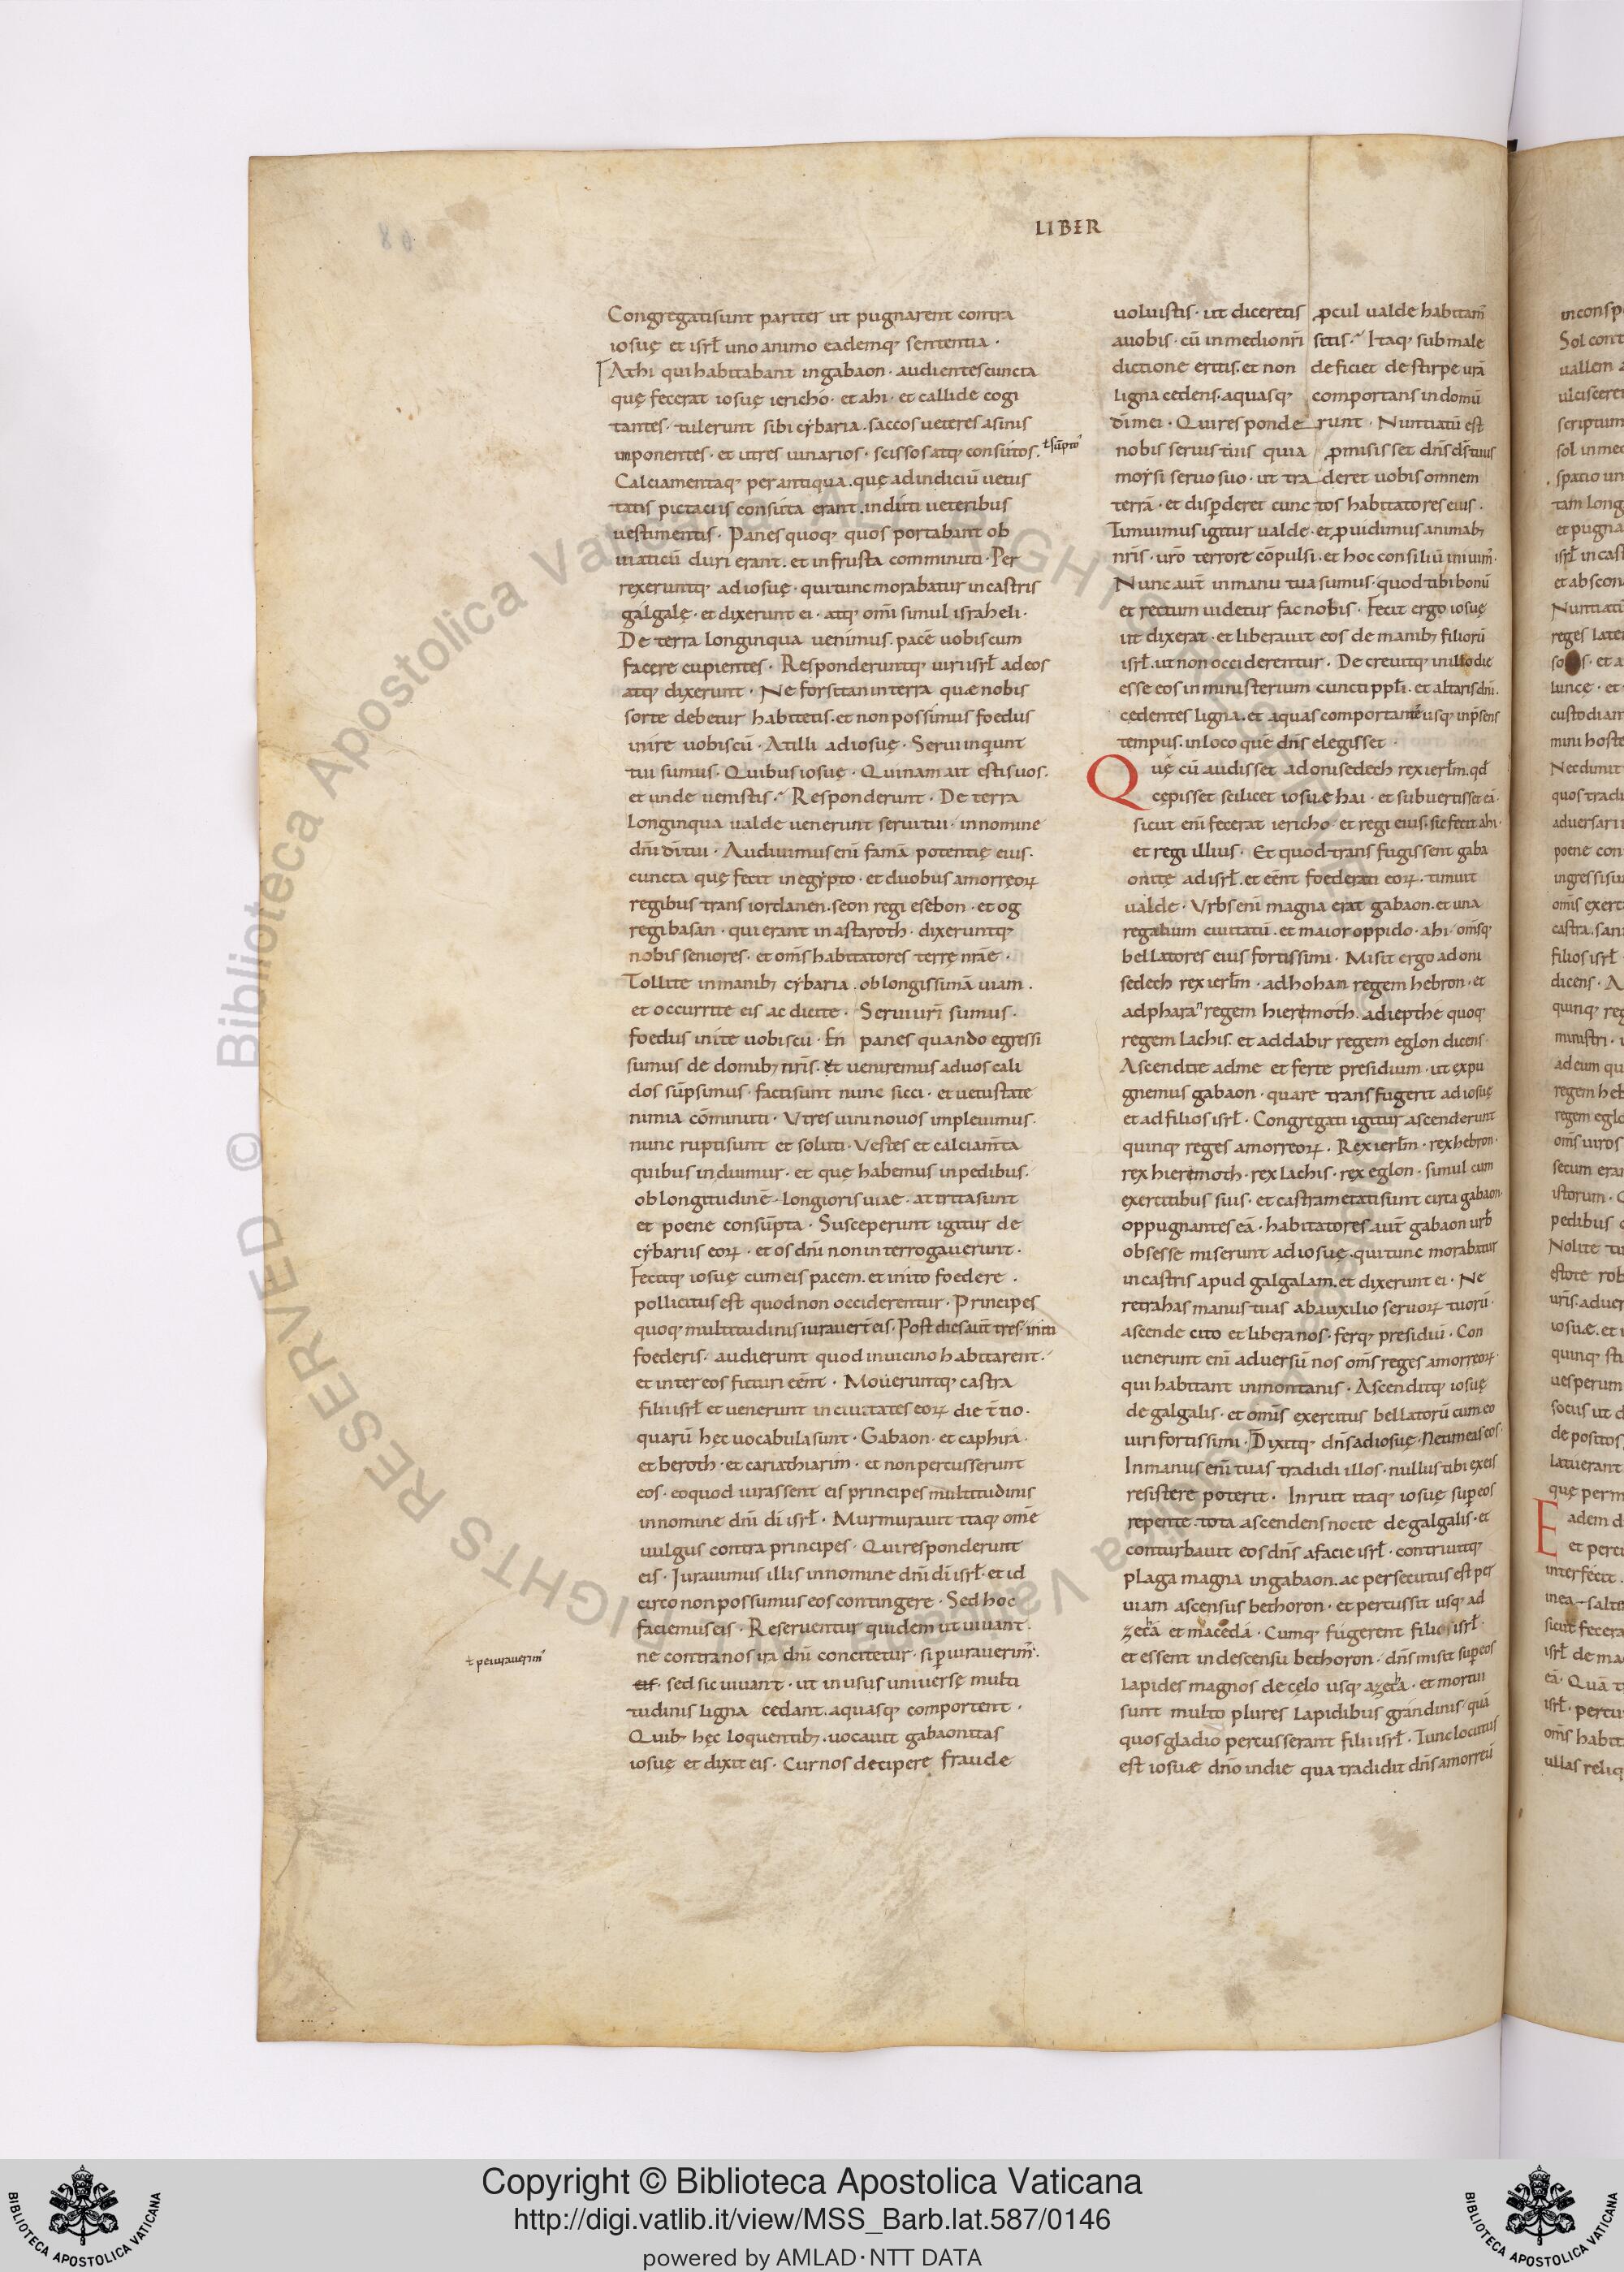 LIBER
Congregatisunt pariter ut pugnarent contra
iosuę et isrł uno animo eademq; sententia ·
Athi qui habitabant ingabaon · audientescuncta
quę fecerat iosuę iericho · et ahi · et callide cogi
tantes · tulerunt sibi cybaria . saccos ueteres asinis
inponentes · et utres uinarios · scissos atq; consutos . ł sūpto
Calciamentaq; perantiqua . quę adindiciū uetus
tatis pictaciis consuta erant . induti ueteribus
uestimentis · Panes quoq; quos portabant ob
uiaticū duri erant . et infrusta comminuti · Per
rexeruntq; adiosuę · qui tunc morabatur incastris
galgalę · et dixerunt ei · atq; omi simul israheli ·
De terra longinqua uenimus . pacē uobiscum
facere cupientes · Responderuntq; uiri isrł adeos
atq; dixerunt · Ne forsitan interra quæ nobis
sorte debetur habitetis . et non possimus foedus
inire uobiscū · Atilli adiosuę · Serui inqunt
tui sumus · Quibus iosuę · Quinam ait estis uos .
et unde uenistis · Responderunt · De terra
longinqua ualde uenerunt serui tui · innomine
dn̄i dī tui · Audiuimus enī famā potentię eius .
cuncta quę fecit inegypto · et duobus amorreoꝝ
regibus trans iordanen . seon regi esebon · et og
regi basan · qui erant in astaroth · dixeruntq;
nobis seniores · et om̄s habitatores terrę nr̄ae ·
Tollite inmanib; cybaria . ob longissimā uiam .
et occurrite eis ac dicite · Serui uri sumus ·
foedus inite uobiscū · En panes quando egressi
sumus de domib; nr̄is . ut ueniremus aduos cali
dos sūpsimus · facti sunt nunc sicci · et uetustate
nimia cōminuti · Vtres uini nouos impleuimus ·
nunc rupti sunt et soluti · Vestes et calciam̄ta
quibus induimur · et quę habemus inpedibus .
ob longitudinē · longioris uiae · attrita sunt
et poene consūpta · Susceperunt igitur de
cybariis eoꝝ · et os dn̄i non interrogauerunt ·
Fecitq; iosuę cum eis pacem . et inito foedere .
pollicitus est quod non occiderentur · Principes
quoq; multitudinis iurauer̄t eis · Post dies aut̄ tres · initi
foederis · audierunt quod inuicino habitarent .
et inter eos futuri eēnt · Moueruntq; castra
filii isrł et uenerunt in ciuitates eoꝝ die t̄tio ·
quarū hęc uocabula sunt · Gabaon · et caphira ·
et beroth · et cariathiarim · et non percusserunt
eos · eoquod iurassent eis principes multitudinis
innomine dn̄i dī isrł · Murmurauit itaq; ome
uulgus contra principes · Qui responderunt
eis · Iurauimus illis innomine dn̄i dī isrł · et id
circo non possumus eos contingere · Sed hoc
faciemus eis · Reseruentur quidem ut uiuant .
ne contra nos ira dn̄i concitetur · si p̄iurauerim̄ .
ł peiurauerim̄
eis · sed sic uiuant · ut inusus uniuersę multi
tudinis ligna cedant . aquasq; comportent ·
Quib; hęc loquentib; . uocauit gabaonitas
iosuę et dixit eis · Cur nos decipere fraude
uoluistis · ut diceretis ꝓcul ualde habitam̄
auobis · cū inmedio nr̄i sitis · Itaq; sub male
dictione eritis . et non deficiet de stirpe urā
ligna cedens . aquasq; comportans indomū
dī mei · Qui responderunt · Nuntiatū est
nobis seruis tuis quia ꝓmisisset dn̄s ds̄ tuus
moysi seruo suo · ut traderet uobis omnem
terrā · et disp̄deret cunctos habitatores eius .
Timuimus igitur ualde · et ꝓuidimus animab;
nr̄is · uro terrore cōpulsi · et hoc consiliū iniuim̄ ·
Nunc aut̄ inmanu tua sumus · quod tibi bonū
et rectum uidetur fac nobis · Fecit ergo iosuę
ut dixerat · et liberauit eos de manib; filiorū
isrł . ut non occiderentur · Decreuitq; inillo die
esse eos in ministerium cuncti ppłi . et altaris dn̄i .
cędentes ligna . et aquas comportantē usq; inp̄sens
tempus . inloco quē dn̄s elegisset ·
Quę cū audisset adonisedech rex ierłm . qd̄
cępisset scilicet iosuæ hai · et subuertisset eā .
sicut enī fecerat iericho · et regi eius . sic fecit ahi ·
et regi illius · Et quod transfugissent gaba
onitę ad isrł . et eēnt foederati eoꝝ . timuit
ualde · Vrbs enī magna erat gabaon . et una
regalium ciuitatū . et maior oppido · ahi · om̄sq;
bellatores eius fortissimi · Misit ergo adoni
sedech rex ierłm · adhoham regem hebron · et
adpharan regem hieremoth . adiepthe quoq;
regem lachis . et addabir regem eglon dicens ·
Ascendite adme et ferte presidium · ut expu
gnemus gabaon · quare transfugerit ad iosuę
et adfilios isrł · Congregati igitur ascenderunt
quinq; reges amorreoꝝ . Rex ierłm · rex hebron ·
rex hieremoth · rex lachis · rex eglon · simul cum
exercitibus suis · et castrametati sunt circa gabaon ·
oppugnantes eā · habitatores aut̄ gabaon urb̄
obsesse miserunt adiosuę . qui tunc morabatur
incastris apud galgalam . et dixerunt ei · Ne
retrahas manus tuas abauxilio seruoꝝ tuorū ·
ascende cito et libera nos · ferq; presidiū · Con
uenerunt enī aduersū nos om̄s reges amorreoꝝ ·
qui habitant inmontanis · Ascenditq; iosuę
de galgalis · et omīs exercitus bellatorū cum eo
uiri fortissimi · Dixitq; dn̄s adiosuę · Ne timeas eos ·
Inmanus enī tuas tradidi illos · nullus tibi exeis
resistere poterit · Inruit itaq; iosuę sup̄ eos
repente . tota ascendens nocte de galgalis · et
conturbauit eos dn̄s afacie isrł · contriuitq;
plaga magna ingabaon . ac persecutus est per
uiam ascensus bethoron · et percussit usq; ad
zecha et macedā · Cumq; fugerent filios isrł ·
et essent indescensu bethoron · dn̄s misit sup̄ eos
lapides magnos de cęlo usq; azecha · et mortui
sunt multo plures lapidibus grandinis quā
quos gladio percusserant filii isrł · Tunc locutus
est iosuæ dn̄o indie qua tradidit dn̄s amorreū
Sol cont
uallem
ulciscere
scriptum
sol inmed
spatio un
tam long
et pugna
isrł incas
et abscon
Nuntiatū
reges late
lunce · et
custodian
mini hoste
Nec dimit
quos tradi
aduersarii
poene con
ingressi sun
om̄s exerc
castra . san
filios isrł ·
dicens · A
quinq; reg
ministri ·
ad eum qu
regem heb
regem eglo
om̄s uiros
secum eran
istorum ·
pedibus
Nolite ti
estote rob
uris . aduer
iosuæ . et
quinq; sti
uesperum
socius ut d
depositos
latuerant
quę perm
E adem d
et percu
interfecit .
inea · salte
sicut fecera
isrł de ma
eā · Quā t
isrł . percu
om̄s habit
ullas reliq
© Biblioteca Apostolica Vaticana ALL RIGHTS RESERVED
Copyright © Biblioteca Apostolica Vaticana
http://digi.vatlib.it/view/MSS_Barb.lat.587/0146
powered by AMLAD·NTT DATA
BIBLIOTECA APOSTOLICA VATICANA
BIBLIOTECA APOSTOLICA VATICANA